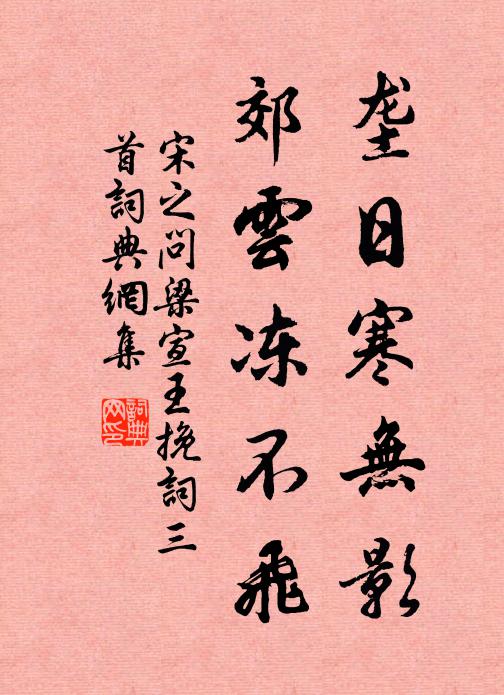 垄日寒無影
郊雲冻不飛
宋之问梁宣王挽詞三
首詞典網集
詞典
网印